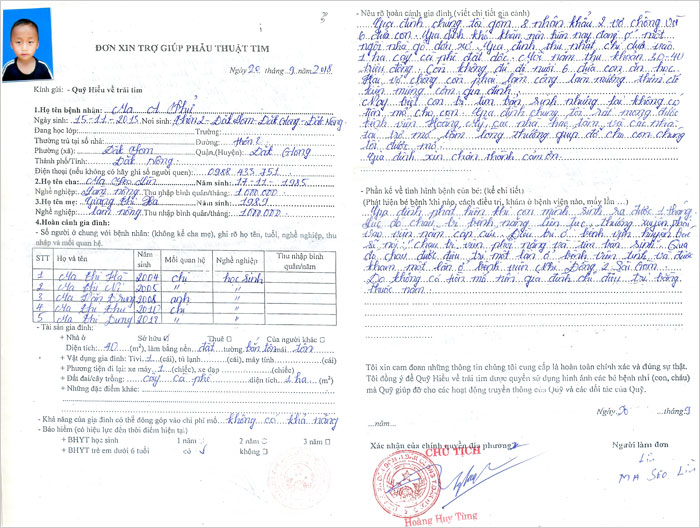 ĐƠN XIN TRỢ GIÚP PHẪU THUẬT TIM
Ngày 20 tháng 9 năm 2018
Kính gửi: - Quỹ Hiểu về trái tim
1.Họ tên bệnh nhân: Ma A Phử
Ngày sinh: 15-11-2015 Nơi sinh: Thôn 2 - Đăk Som - Đăk Glong - Đăk Nông
Đang học lớp: Trường:
Thường trú tại số nhà: Đường: thôn 2
Phường (xã): Đăk Som Quận,(Huyện): Đăk Glong
Thành phố/Tỉnh: Đăk Nông
Điện thoại (nếu không có hãy ghi số người quen): 0988 433 751
2.Họ tên cha: Ma Seo Lìn Năm sinh: 17-11-1985
Nghề nghiệp: làm nông Thu nhập bình quân/tháng: 1.000.000
3.Họ tên mẹ: Giàng Thị Ha Năm sinh: 1989
Nghề nghiệp: làm nông Thu nhập bình quân/tháng: 1.000.000
4.Hoàn cảnh gia đình:
- Số người ở chung với bệnh nhân: (không kể cha mẹ), ghi rõ họ tên, tuổi, nghề nghiệp, thu nhập và mối quan hệ.
STT Họ và tên Năm sinh Mối quan hệ Nghề nghiệp Thu nhập bình quân/năm
1 Ma Thị Ha 2004 chị học sinh
2 Ma Thị 2005 " "
3 Ma Văn Dung 2008 anh "
4 Ma Thị Thu 2010 chị "
5 Ma Thị Dung "
- Tài sản gia đình:
+ Nhà ở Sở hữu Thuê Của người khác
Diện tích: 40 (m²), làm bằng nền đất tường bắn tôn mái tôn
+ Vật dụng gia đình: Tivi 1 (cái), tủ lạnh (cái), máy tính (cái)
+ Phương tiện đi lại: xe máy 1 (chiếc), xe đạp (chiếc)
+ Đất đai/cây trồng: cây cà phê diện tích 1 ha (m²)
+ Những đặc điểm khác:
- Khả năng của gia đình có thể đóng góp vào chi phí mổ không có khả năng
- Bảo hiểm (có hiệu lực đến thời điểm hiện tại)
+ BHYT học sinh 1 năm 2 năm 3 năm
+ BHYT trẻ em dưới 6 tuổi có không
- Nêu rõ hoàn cảnh gia đình (viết chi tiết gia cảnh)
Gia đình chúng tôi gồm 8 nhân khẩu 2 vợ chồng với
6 đứa con. Gia đình khó khăn nên hiện nay đang ở một
ngôi nhà gỗ đơn sơ. Gia đình thu nhất, chỉ dựa vào
1 ha cây cà phê đất dốc. Mỗi năm thu khoản 30-40
triệu đồng. Còn không đủ để nuôi 6 đứa con ăn học.
Hai vợ chồng còn phải làm công làm mướng thêm để
kiếm miếng cơm gia đình.
Nay bật con bị tim bẩm sinh nhưng lại không có
tiền mổ cho con. Gia đình chúng tôi rất mong được
bệnh viện Hoàng Mỹ, các nhà hảo tâm và các nhà
tài trợ mở tấm lòng thương giúp đỡ cho con chúng
tôi được mổ.
Gia đình xin chân thành cảm ơn.
- Phần kể về tình hình bệnh của bé: (kể chi tiết)
(Phát hiện bé bệnh khi nào, cách điều trị, khám ở bệnh viện nào, mấy lần....)
Gia đình phát hiện khi con mình sinh ra được 1 tháng
lúc đó cháu bị bệnh nặng liên tục, thường xuyên phải
vào viện nằm cấp cứu. Điều trị ở bệnh viện người bác
sĩ nói cháu bị viêm phổi nặng và tim bẩm sinh. Qua
đó cháu được điều trị một lần ở bệnh viện tỉnh và được
khám một lần ở bệnh viện Nhi Đồng 2 Sài Gòn.
Do không có tiền mổ nên gia đình chỉ điều trị bằng
thuốc nam.
Tôi xin cam đoan những thông tin chúng tôi cung cấp là hoàn toàn chính xác và đúng sự thật.
Tôi đồng ý để Quỹ Hiểu về trái tim được quyền sử dụng hình ảnh các bé bệnh nhi (con, cháu)
mà Quỹ giúp đỡ cho các hoạt động truyền thông của Quỹ và các đối tác của Quỹ.
Ngày 20 tháng 9
...năm...
Xác nhận của chính quyền địa phương
Người làm đơn
CHỦ TỊCH
Lìn
MA SEO LÌN
Hoàng Huy Tùng